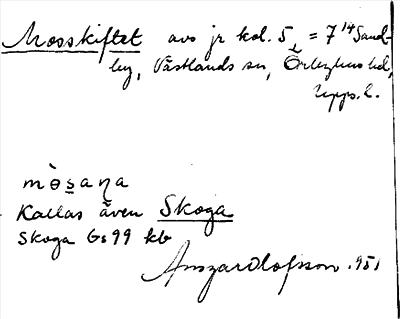 Mosskiftet avs jr kol. 5 = 7¹⁴ Sand-
by, Västlands sn, Örbyhus hd,
Upps. l.
mòsana
Kallas även Skoga
Skoga Gs 99 kb
Ansgar Olofsson. 1951